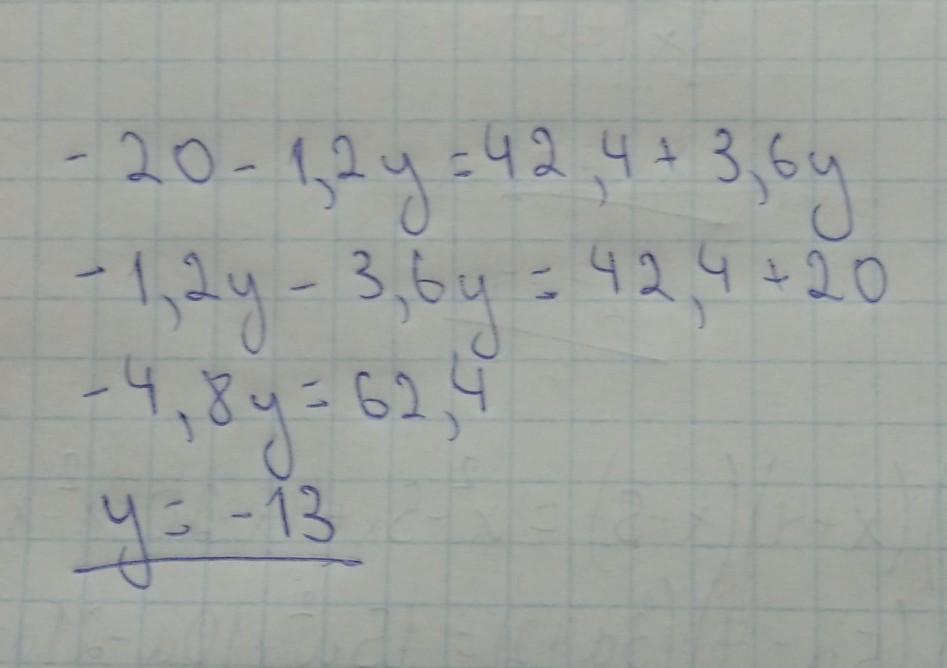 -20-1,2y=42,4+3,6y
-1,2y-3,6y=42,4+20
-4,8y=62,4
y=-13